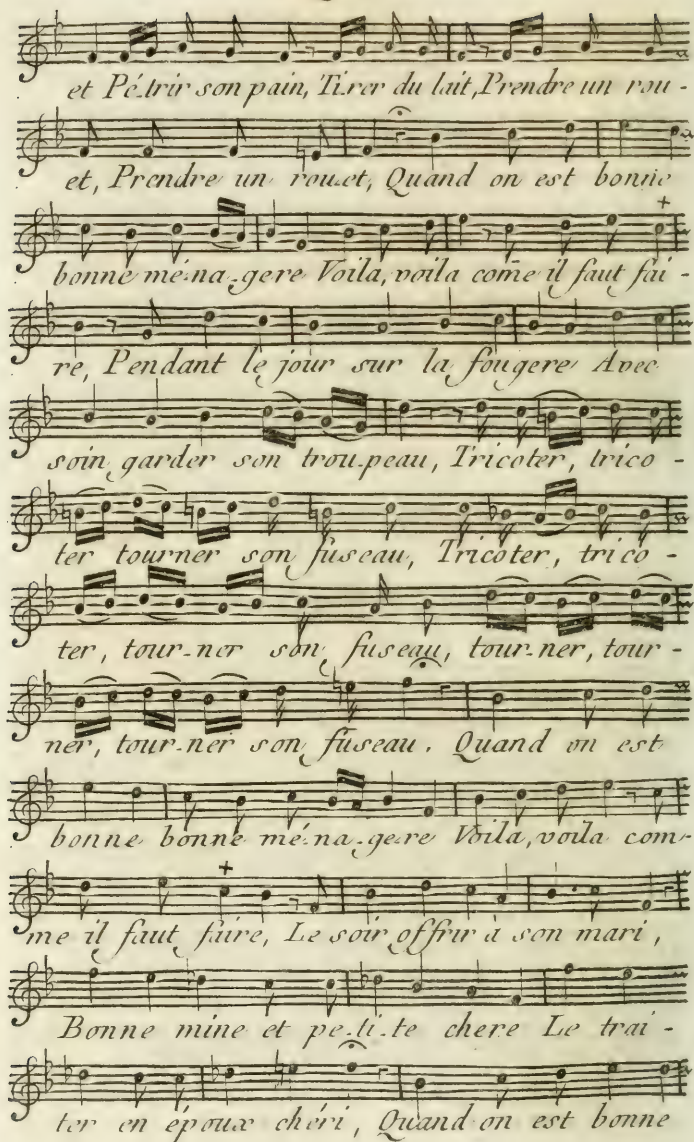 et Pé-trir son pain, Ti-rer du lait, Prendre un rou-
et, Prendre un rou-et, Quand on est bonne
bonne mé-na-gere Voila, voila côme il faut fai-
re, Pendant le jour sur la fougere Avec
soin garder son trou-peau, Tricoter, trico-
ter tourner son fuseau, Tricoter, trico-
ter, tour-ner son fuseau, tour-ner, tour-
ner, tour-ner son fuseau. Quand on est
bonne bonne mé-na-gere Voila, voila com-
me il faut faire, Le soir offrir à son mari,
Bonne mine et pe-ti-te chere Le trai-
ter en époux chéri, Quand on est bonne